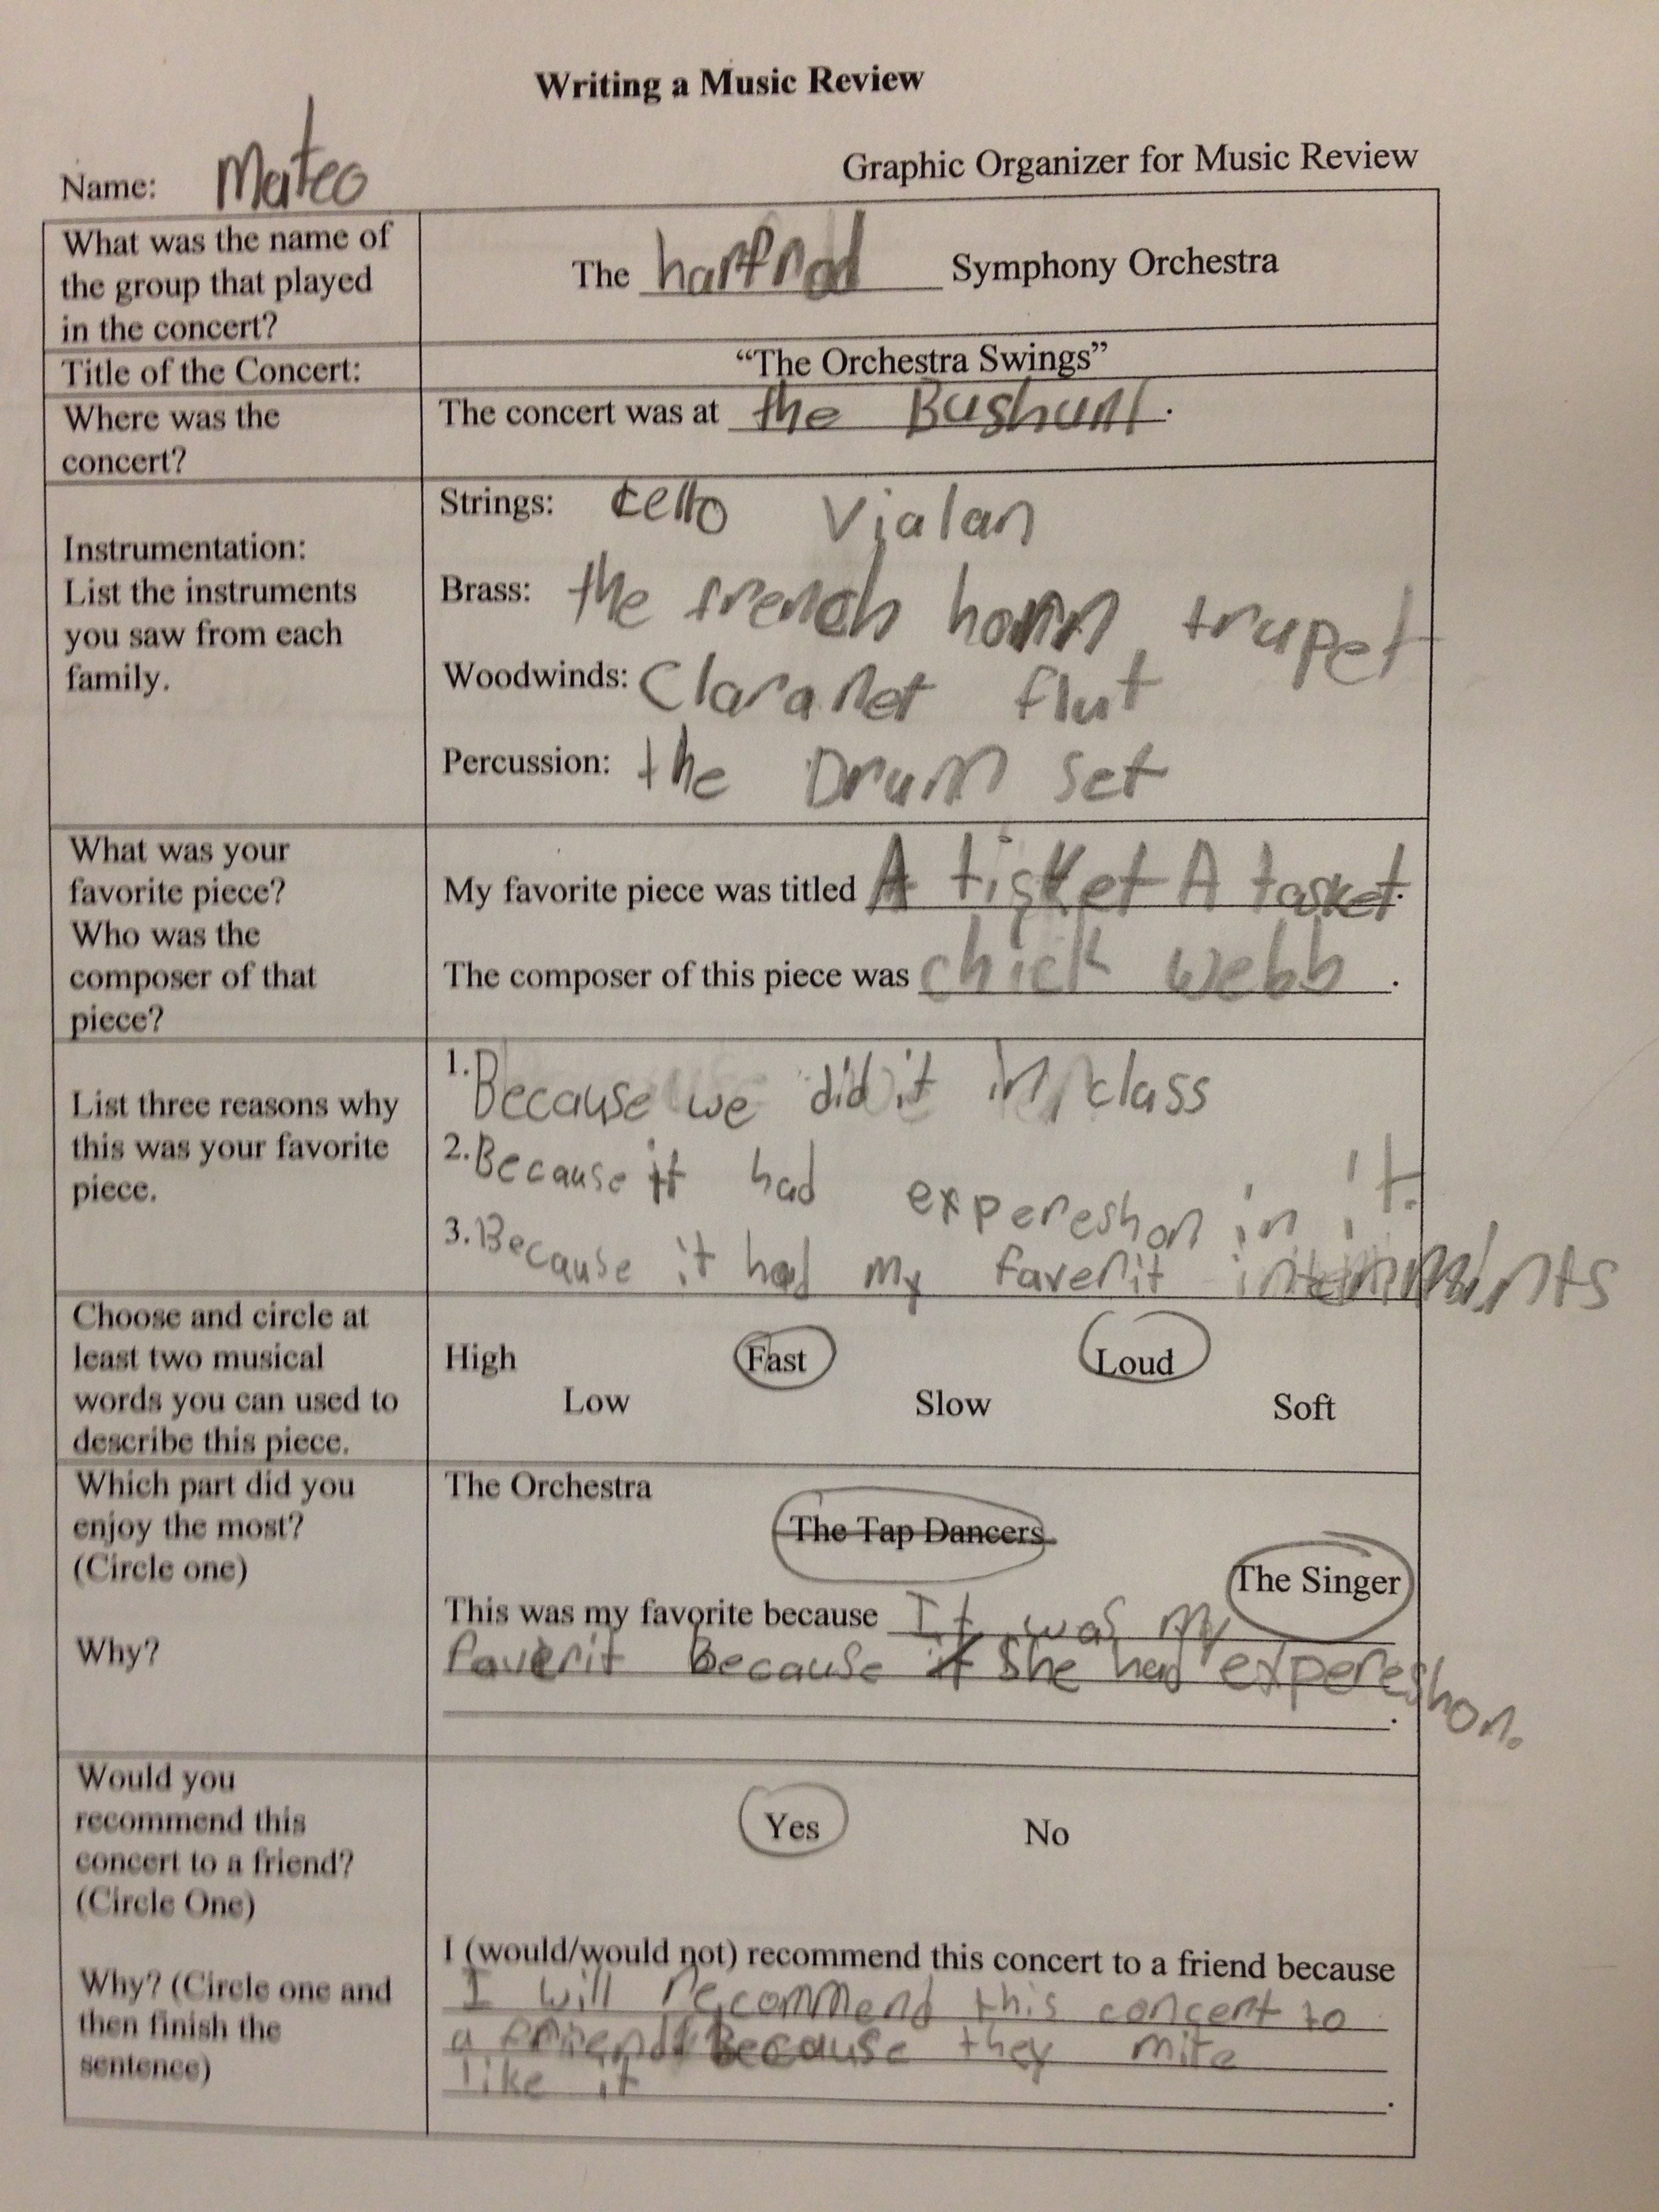 Writing a Music Review
Name: Mateo
Graphic Organizer for Music Review
What was the name of
the group that played
in the concert?
The hartfrod Symphony Orchestra
Title of the Concert:
“The Orchestra Swings”
Where was the
concert?
The concert was at the Bushunl.
Instrumentation:
List the instruments
you saw from each
family.
Strings: cello Vialan
Brass: the french horn, trupet
Woodwinds: Claranet flut
Percussion: the Drum set
What was your
favorite piece?
Who was the
composer of that
piece?
My favorite piece was titled A tisket A tasket.
The composer of this piece was chick webb.
List three reasons why
this was your favorite
piece.
1. Because we did it in class
2. Because it had expereshon in it.
3. Because it had my faverit
Choose and circle at
least two musical
words you can used to
describe this piece.
High Fast Loud
Low Slow Soft
Which part did you
enjoy the most?
(Circle one)
Why?
The Orchestra
The Tap Dancers
The Singer
This was my favorite because It was my
faverit because she had expereshon.
Would you
recommend this
concert to a friend?
(Circle One)
Why? (Circle one and
then finish the
sentence)
Yes No
I (would/would not) recommend this concert to a friend because
I will recommend this concert to
a friend Because they mite
like it.